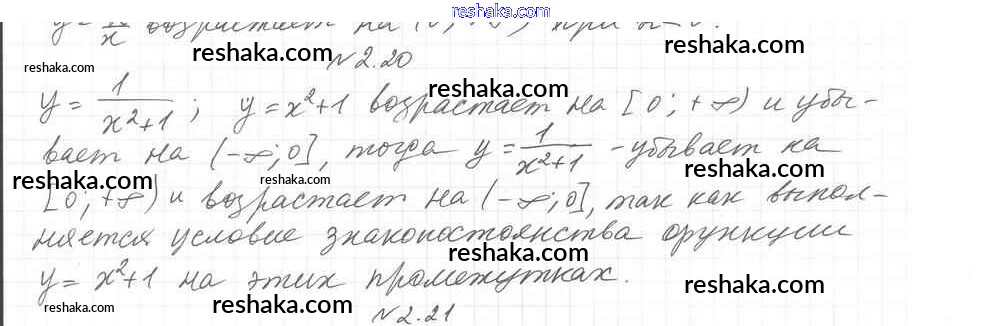 reshaka.com
y = к/x возрастает на (0; +∞) при к<0.
reshaka.com reshaka.com
№2.20
reshaka.com
y = 1/(x²+1); y = x²+1 возрастает на [0; +∞) и убы-
reshaka.com
вает на (-∞; 0], тогда y = 1/(x²+1) - убывает на
reshaka.com reshaka.com reshaka.com
[0; +∞) и возрастает на (-∞; 0], так как выпол-
няется условие знакопостоянства функции
reshaka.com
y = x²+1 на этих промежутках.
reshaka.com reshaka.com reshaka.com
№2.21